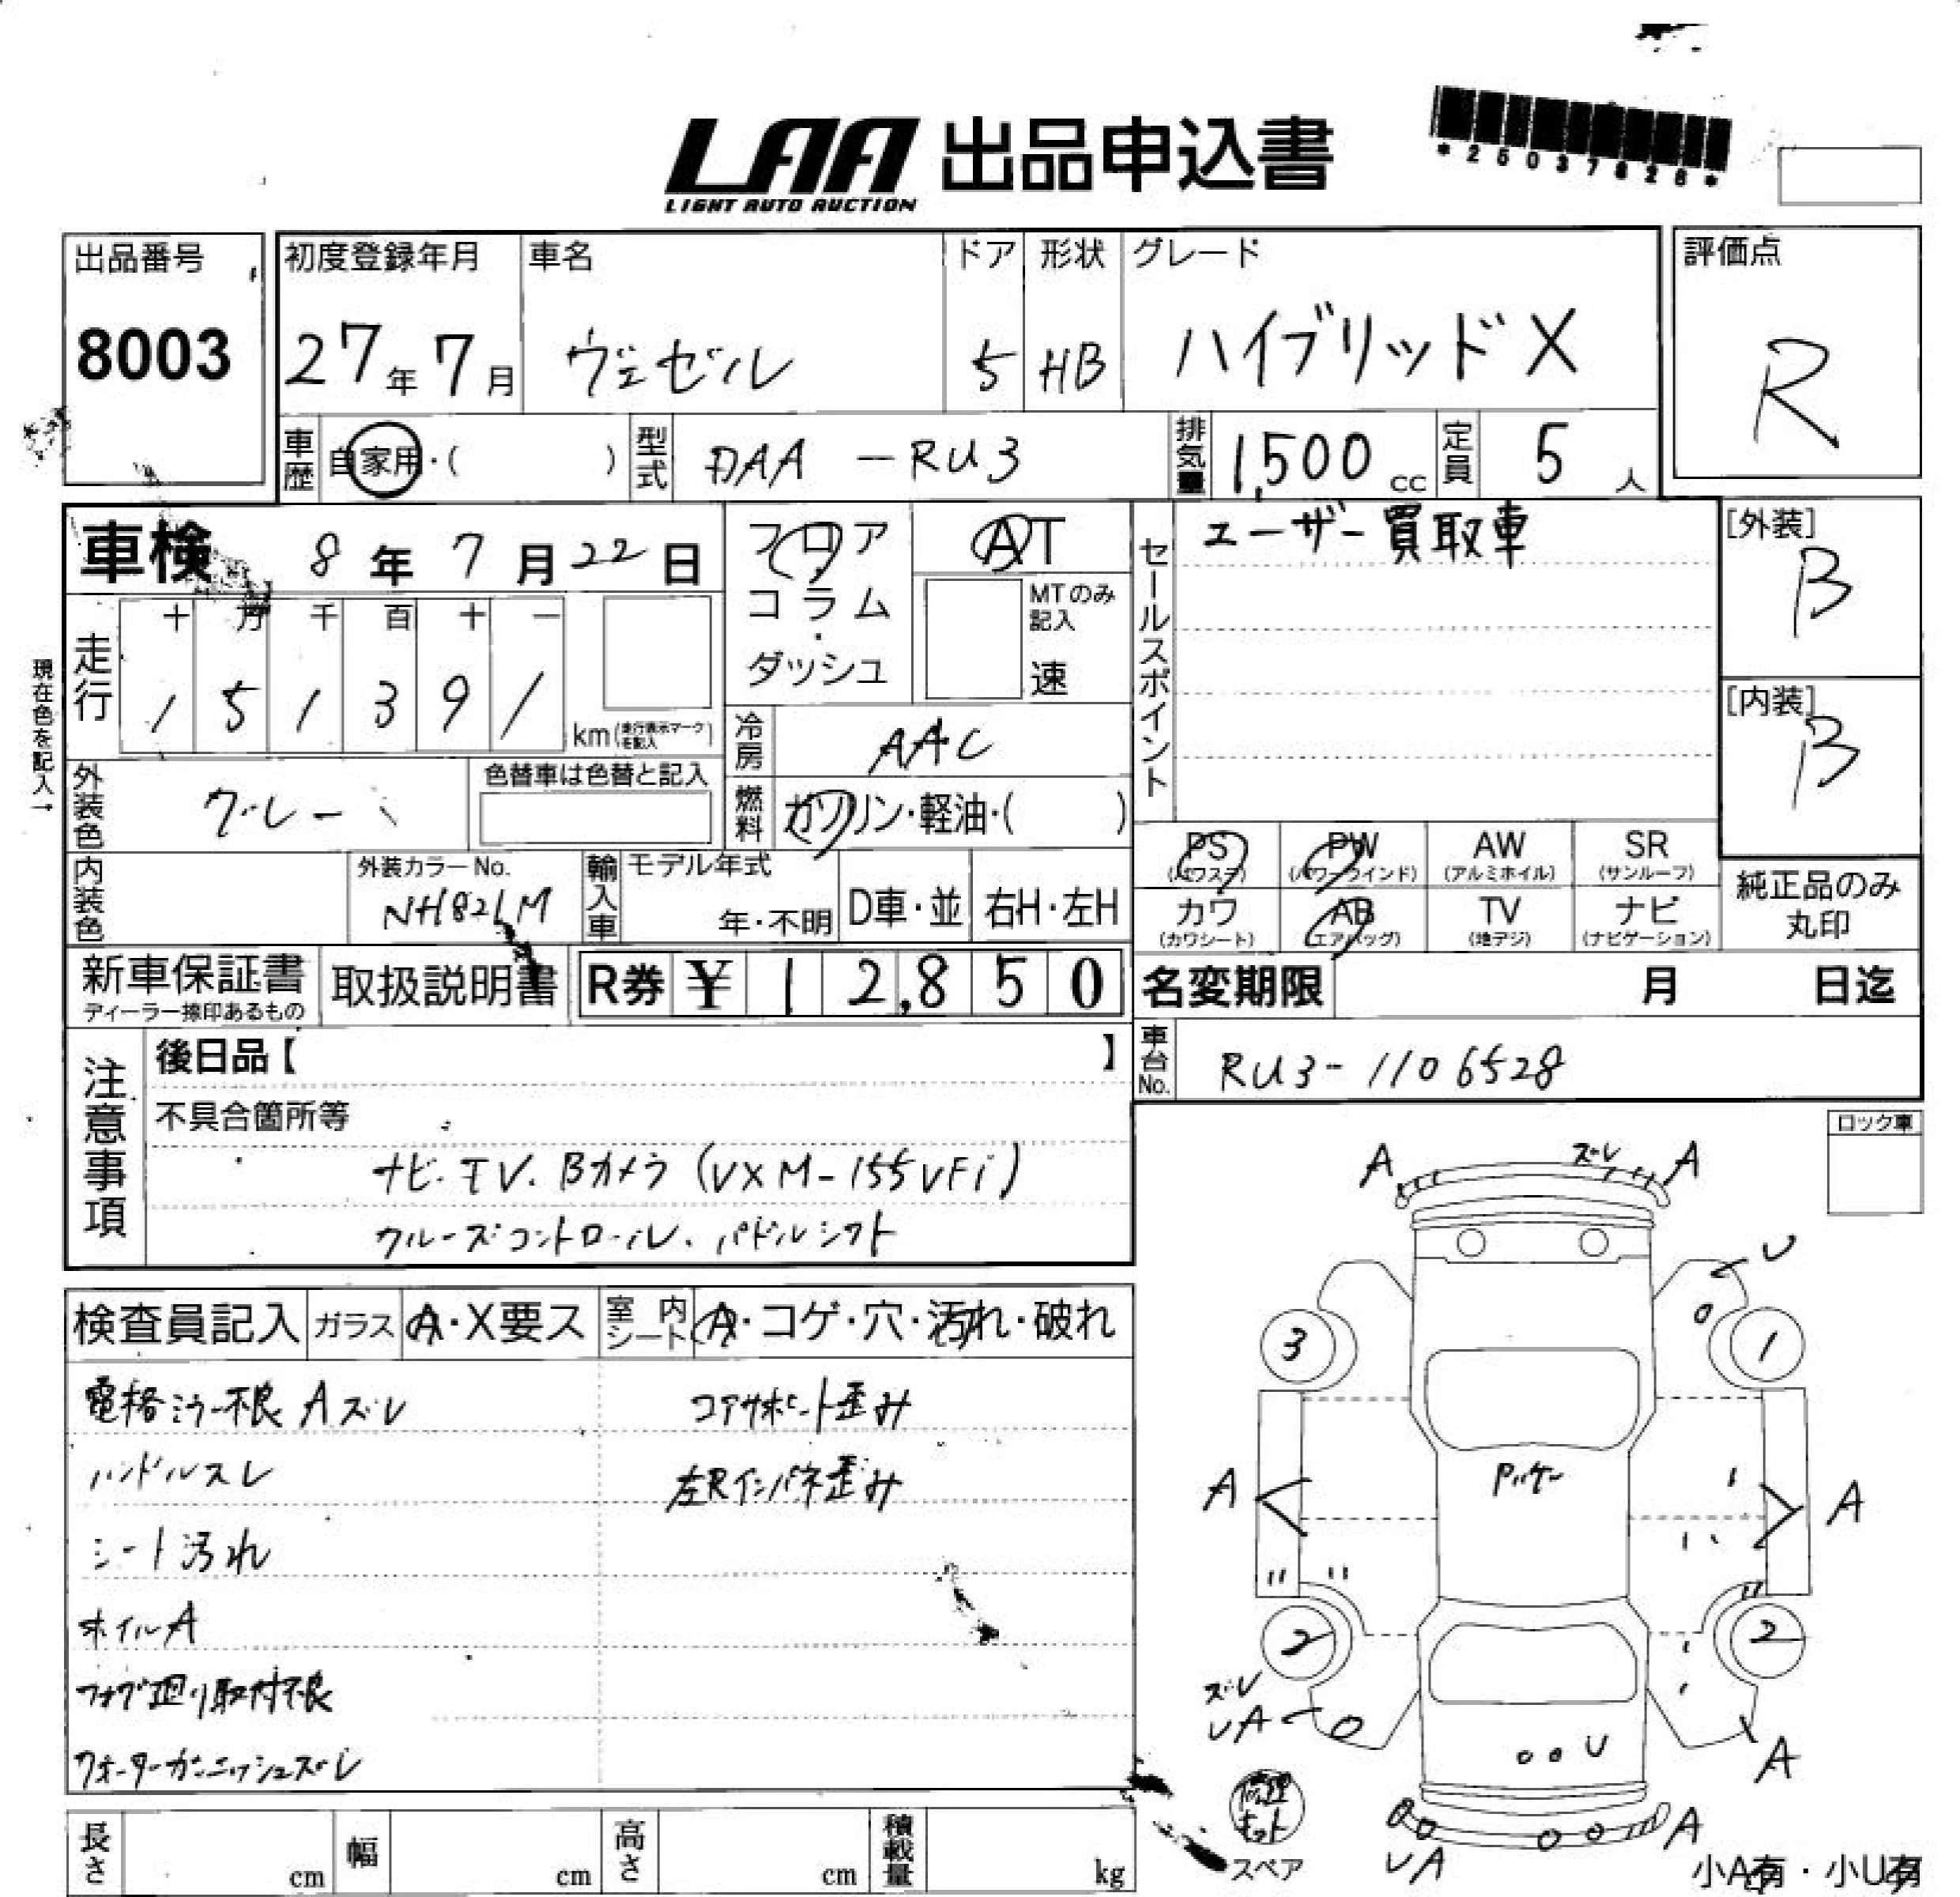 LAA 出品申込書
LIGHT AUTO AUCTION
*25037828*
出品番号
8003
初度登録年月
27年7月
車名
ヴェゼル
ドア
5
形状
HB
グレード
ハイブリッドX
評価点
R
車歴
自家用・( )
型式
DAA-RU3
排気量
1,500cc
定員
5人
車検 8年7月22日
フロア
コラム・
ダッシュ
AT
MTのみ記入
速
セールスポイント
ユーザー買取車
[外装]
B
[内装]
B
現在色を記入→
走行
十 万 千 百 十 一
1 5 1 3 9 1
km(走行表示マークを記入)
冷房
AAC
燃料
ガソリン・軽油・( )
外装色
グレー
色替車は色替と記入
内装色
外装カラーNo.
NH82LM
輸入車
モデル年式
年・不明
D車・並
右H・左H
PS
(パワステ)
PW
(パワーウインド)
AW
(アルミホイル)
SR
(サンルーフ)
カワ
(カワシート)
AB
(エアバッグ)
TV
(地デジ)
ナビ
(ナビゲーション)
純正品のみ
丸印
新車保証書
ディーラー捺印あるもの
取扱説明書
R券 ¥ 12,850
名変期限 月 日迄
車台No.
RU3-1106528
注意事項
後日品【 】
不具合箇所等
ナビ.TV.Bカメラ(VXM-155VFi)
クルーズコントロール.パドルシフト
ロック車
検査員記入
ガラス
A・X要ス
室内シート
A・コゲ・穴・汚れ・破れ
電格ミラー不良 Aズレ
ハンドルスレ
シート汚れ
ホイルA
フォグ廻り取付不良
クォーターガーニッシュズレ
コアサポート歪み
左Rインパネ歪み
A ズレ A
U
3 1
A A
2 2
ズレ
UA
U
A
UA
A
修理キット
スペア
小A有・小U有
長さ cm
幅 cm
高さ cm
積載量 kg